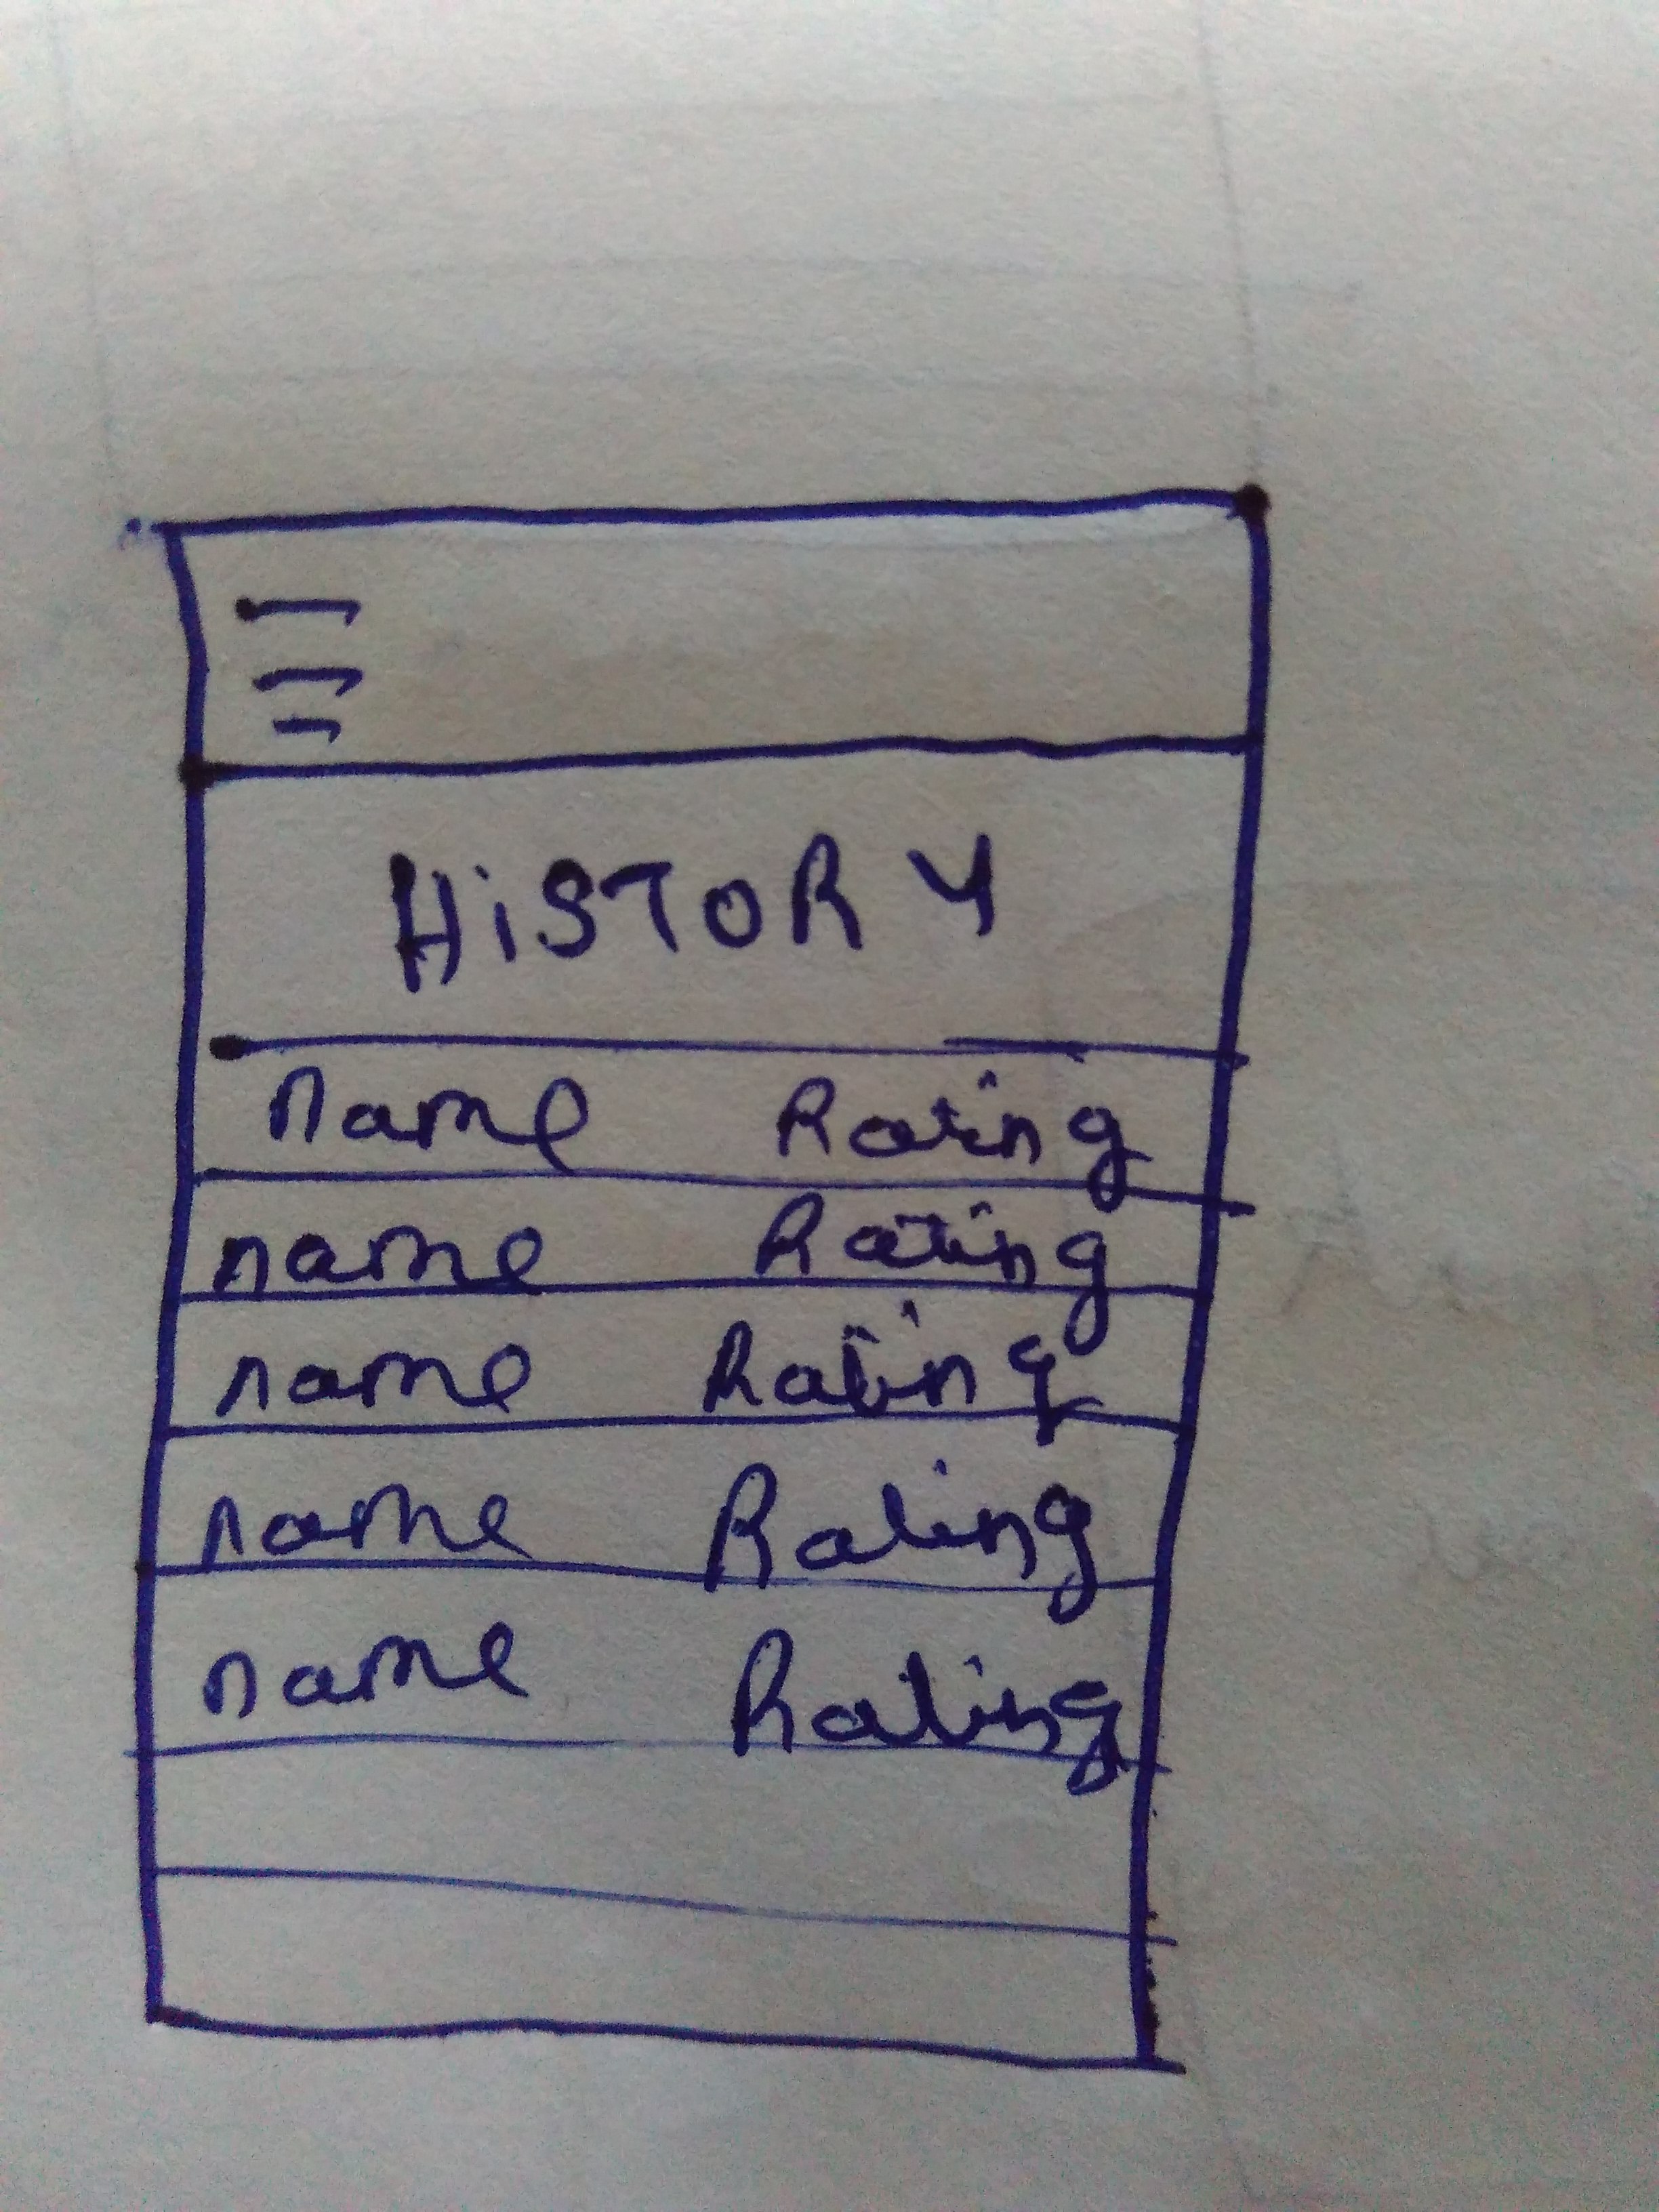 HiSTORY
name Rating
name Rating
name Rating
name Rating
name Rating